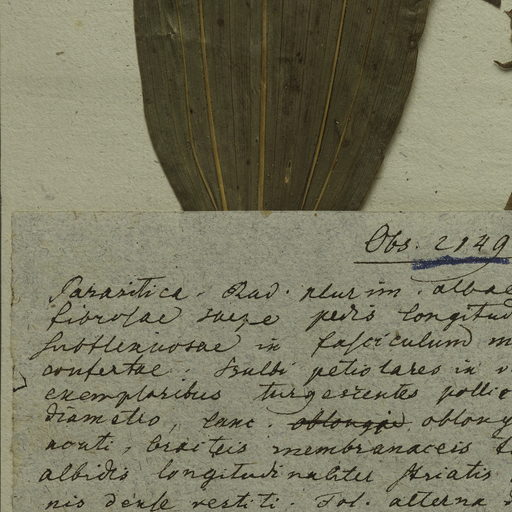 Obs. 2149
Parasitica. Rad. plurim. albae
fibrosae saepe pedis longitud
subflexuosae in fasciculum m
confertae. Bulbi petiolares in v
exemplaribus turgescentes pollic
diametro, lanc. oblongae oblong
acuti, bracteis membranaceis
albidis longitudinaliter striatis
nis dense vestiti. Fol. alterna